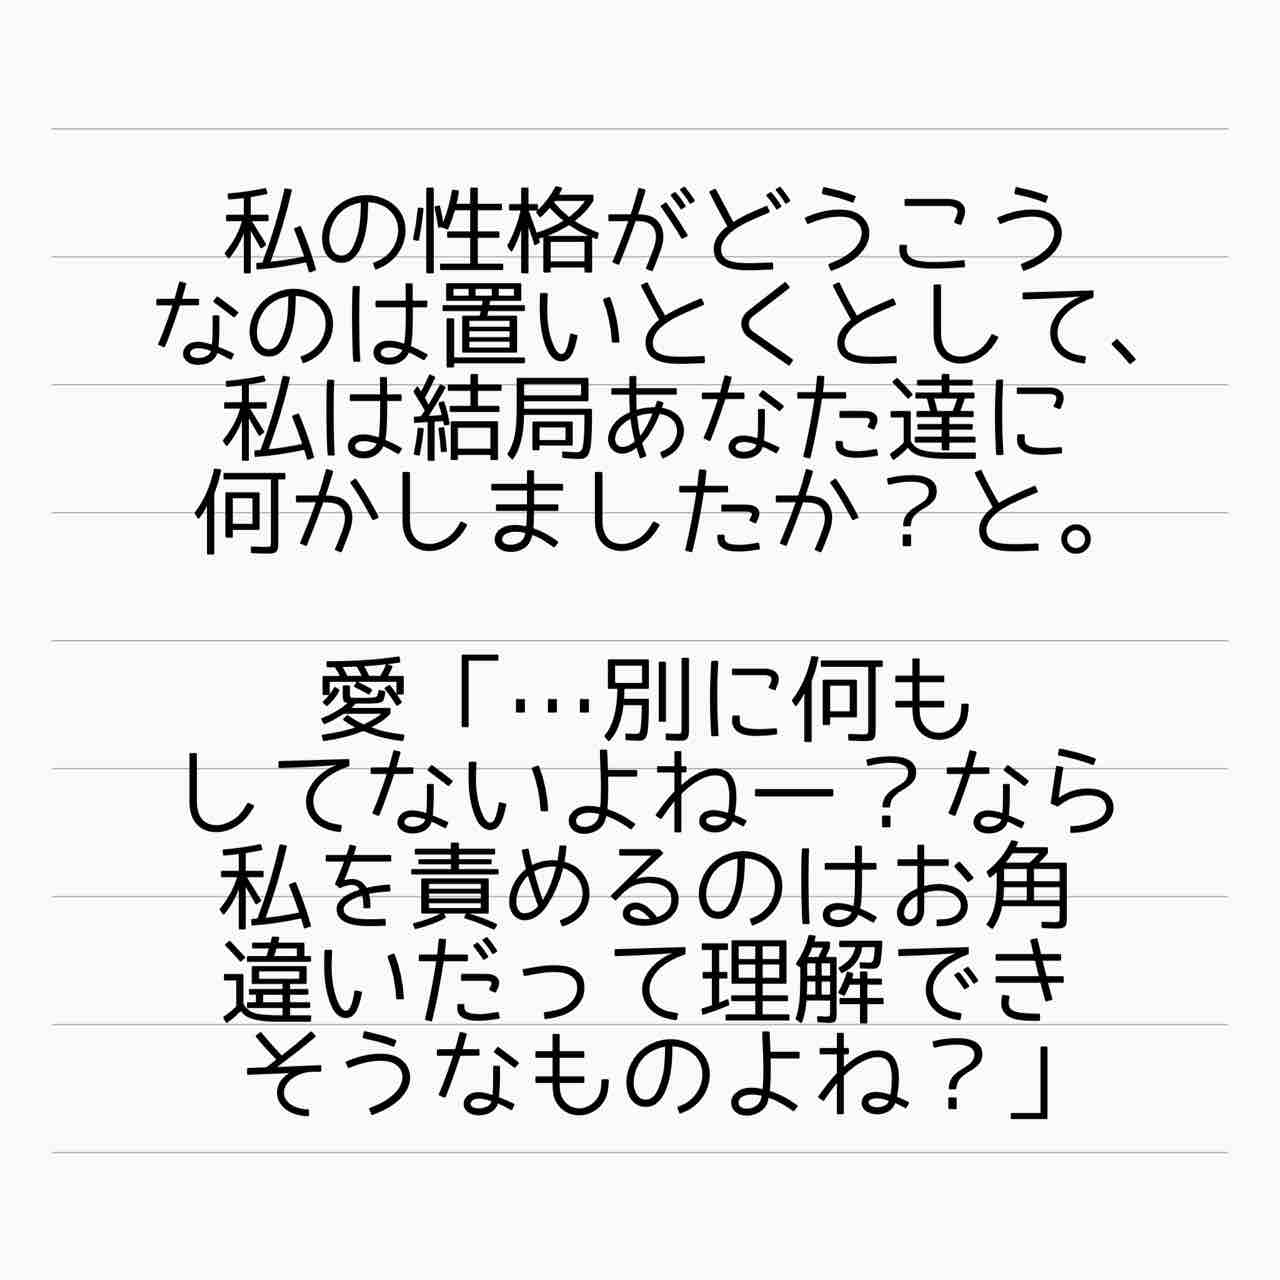 私の性格がどうこう
なのは置いとくとして、
私は結局あなた達に
何かしましたか？と。
愛「…別に何も
してないよねー？なら
私を責めるのはお角
違いだって理解でき
そうなものよね？」